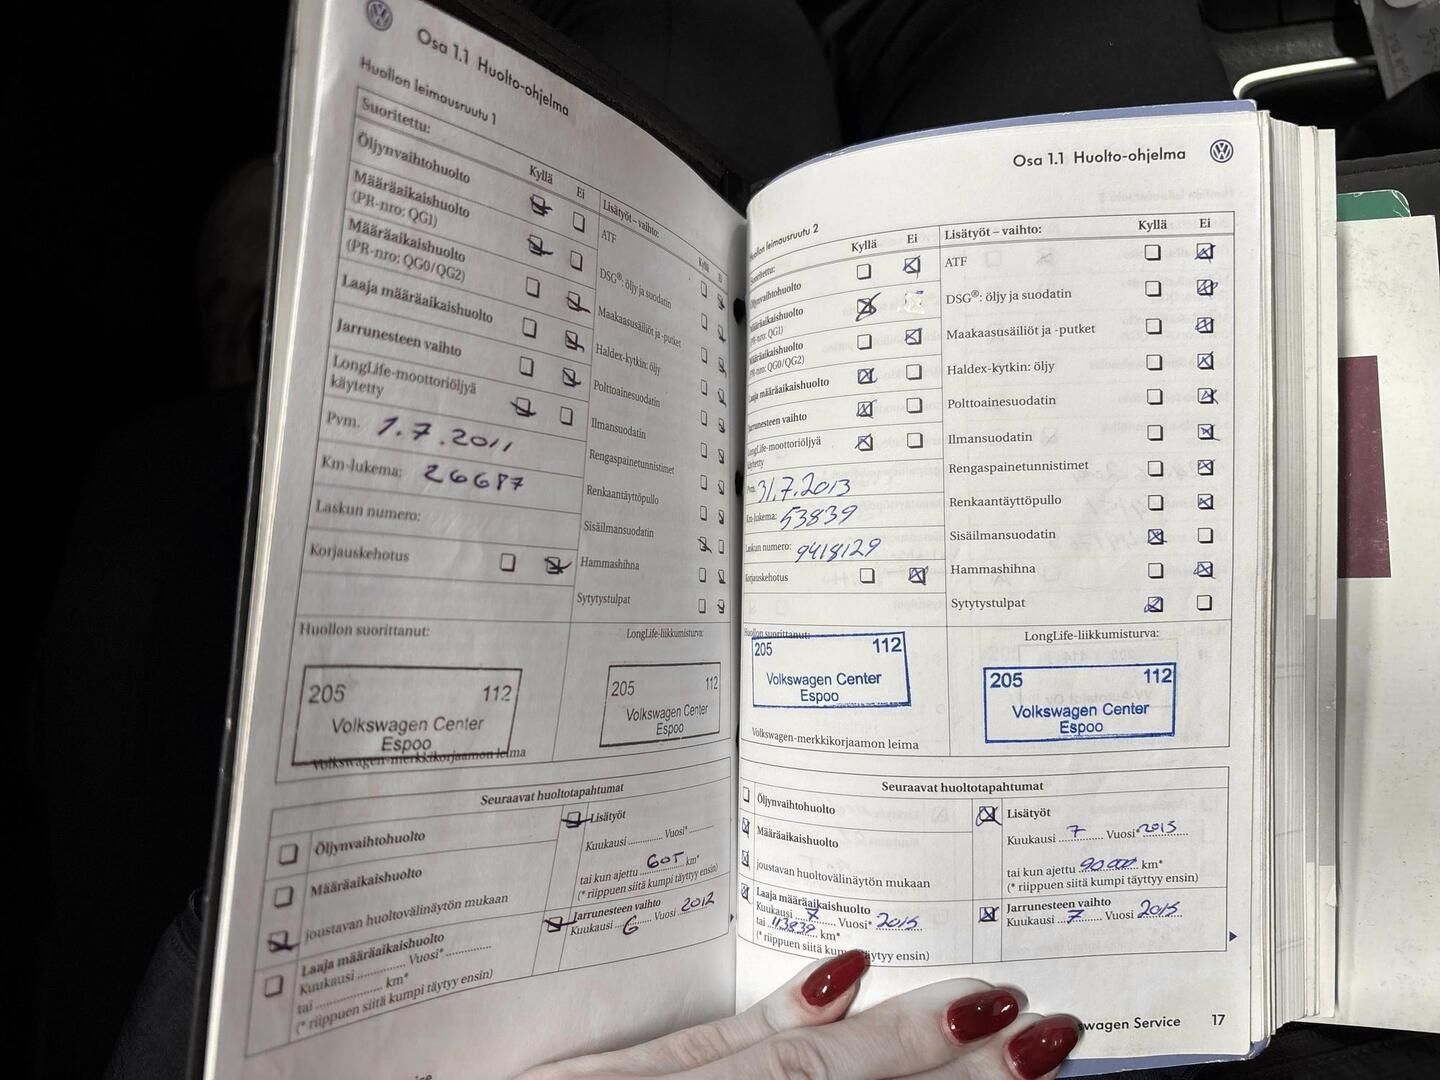 Osa 1.1 Huolto-ohjelma
Huollon leimausruutu 1
Suoritettu:
Kyllä Ei
Öljynvaihtohuolto
Määräaikaishuolto
(PR-nro: QG1)
Määräaikaishuolto
(PR-nro: QG0/QG2)
Laaja määräaikaishuolto
Jarrunesteen vaihto
LongLife-moottoriöljyä
käytetty
Pvm. 1.7.2011
Km-lukema: 26687
Laskun numero:
Korjauskehotus
Lisätyöt – vaihto:
Kyllä Ei
ATF
DSG®: öljy ja suodatin
Maakaasusäiliöt ja -putket
Haldex-kytkin: öljy
Polttoainesuodatin
Ilmansuodatin
Rengaspainetunnistimet
Renkaantäyttöpullo
Sisäilmansuodatin
Hammashihna
Sytytystulpat
Huollon suorittanut:
LongLife-liikkumisturva:
205 112
Volkswagen Center
Espoo
205 112
Volkswagen Center
Espoo
Volkswagen-merkkikorjaamon leima
Seuraavat huoltotapahtumat
Öljynvaihtohuolto
Määräaikaishuolto
joustavan huoltovälinäytön mukaan
Laaja määräaikaishuolto
Kuukausi Vuosi*
tai km*
(* riippuen siitä kumpi täytyy ensin)
Lisätyöt
Kuukausi Vuosi*
tai kun ajettu 60T km*
(* riippuen siitä kumpi täytyy ensin)
Jarrunesteen vaihto
Kuukausi 6 Vuosi 2012
Osa 1.1 Huolto-ohjelma
Huollon leimausruutu 2
Suoritettu:
Kyllä Ei
Öljynvaihtohuolto
Määräaikaishuolto
(PR-nro: QG1)
Määräaikaishuolto
(PR-nro: QG0/QG2)
Laaja määräaikaishuolto
Jarrunesteen vaihto
LongLife-moottoriöljyä
käytetty
Pvm. 31.7.2013
Km-lukema: 53839
Laskun numero: 9418129
Korjauskehotus
Lisätyöt – vaihto:
Kyllä Ei
ATF
DSG®: öljy ja suodatin
Maakaasusäiliöt ja -putket
Haldex-kytkin: öljy
Polttoainesuodatin
Ilmansuodatin
Rengaspainetunnistimet
Renkaantäyttöpullo
Sisäilmansuodatin
Hammashihna
Sytytystulpat
Huollon suorittanut:
LongLife-liikkumisturva:
205 112
Volkswagen Center
Espoo
205 112
Volkswagen Center
Espoo
Volkswagen-merkkikorjaamon leima
Seuraavat huoltotapahtumat
Öljynvaihtohuolto
Määräaikaishuolto
joustavan huoltovälinäytön mukaan
Laaja määräaikaishuolto
Kuukausi 7 Vuosi* 2015
tai 113839 km*
(* riippuen siitä kumpi täytyy ensin)
Lisätyöt
Kuukausi 7 Vuosi* 2015
tai kun ajettu 90 000 km*
(* riippuen siitä kumpi täytyy ensin)
Jarrunesteen vaihto
Kuukausi 7 Vuosi 2015
swagen Service 17